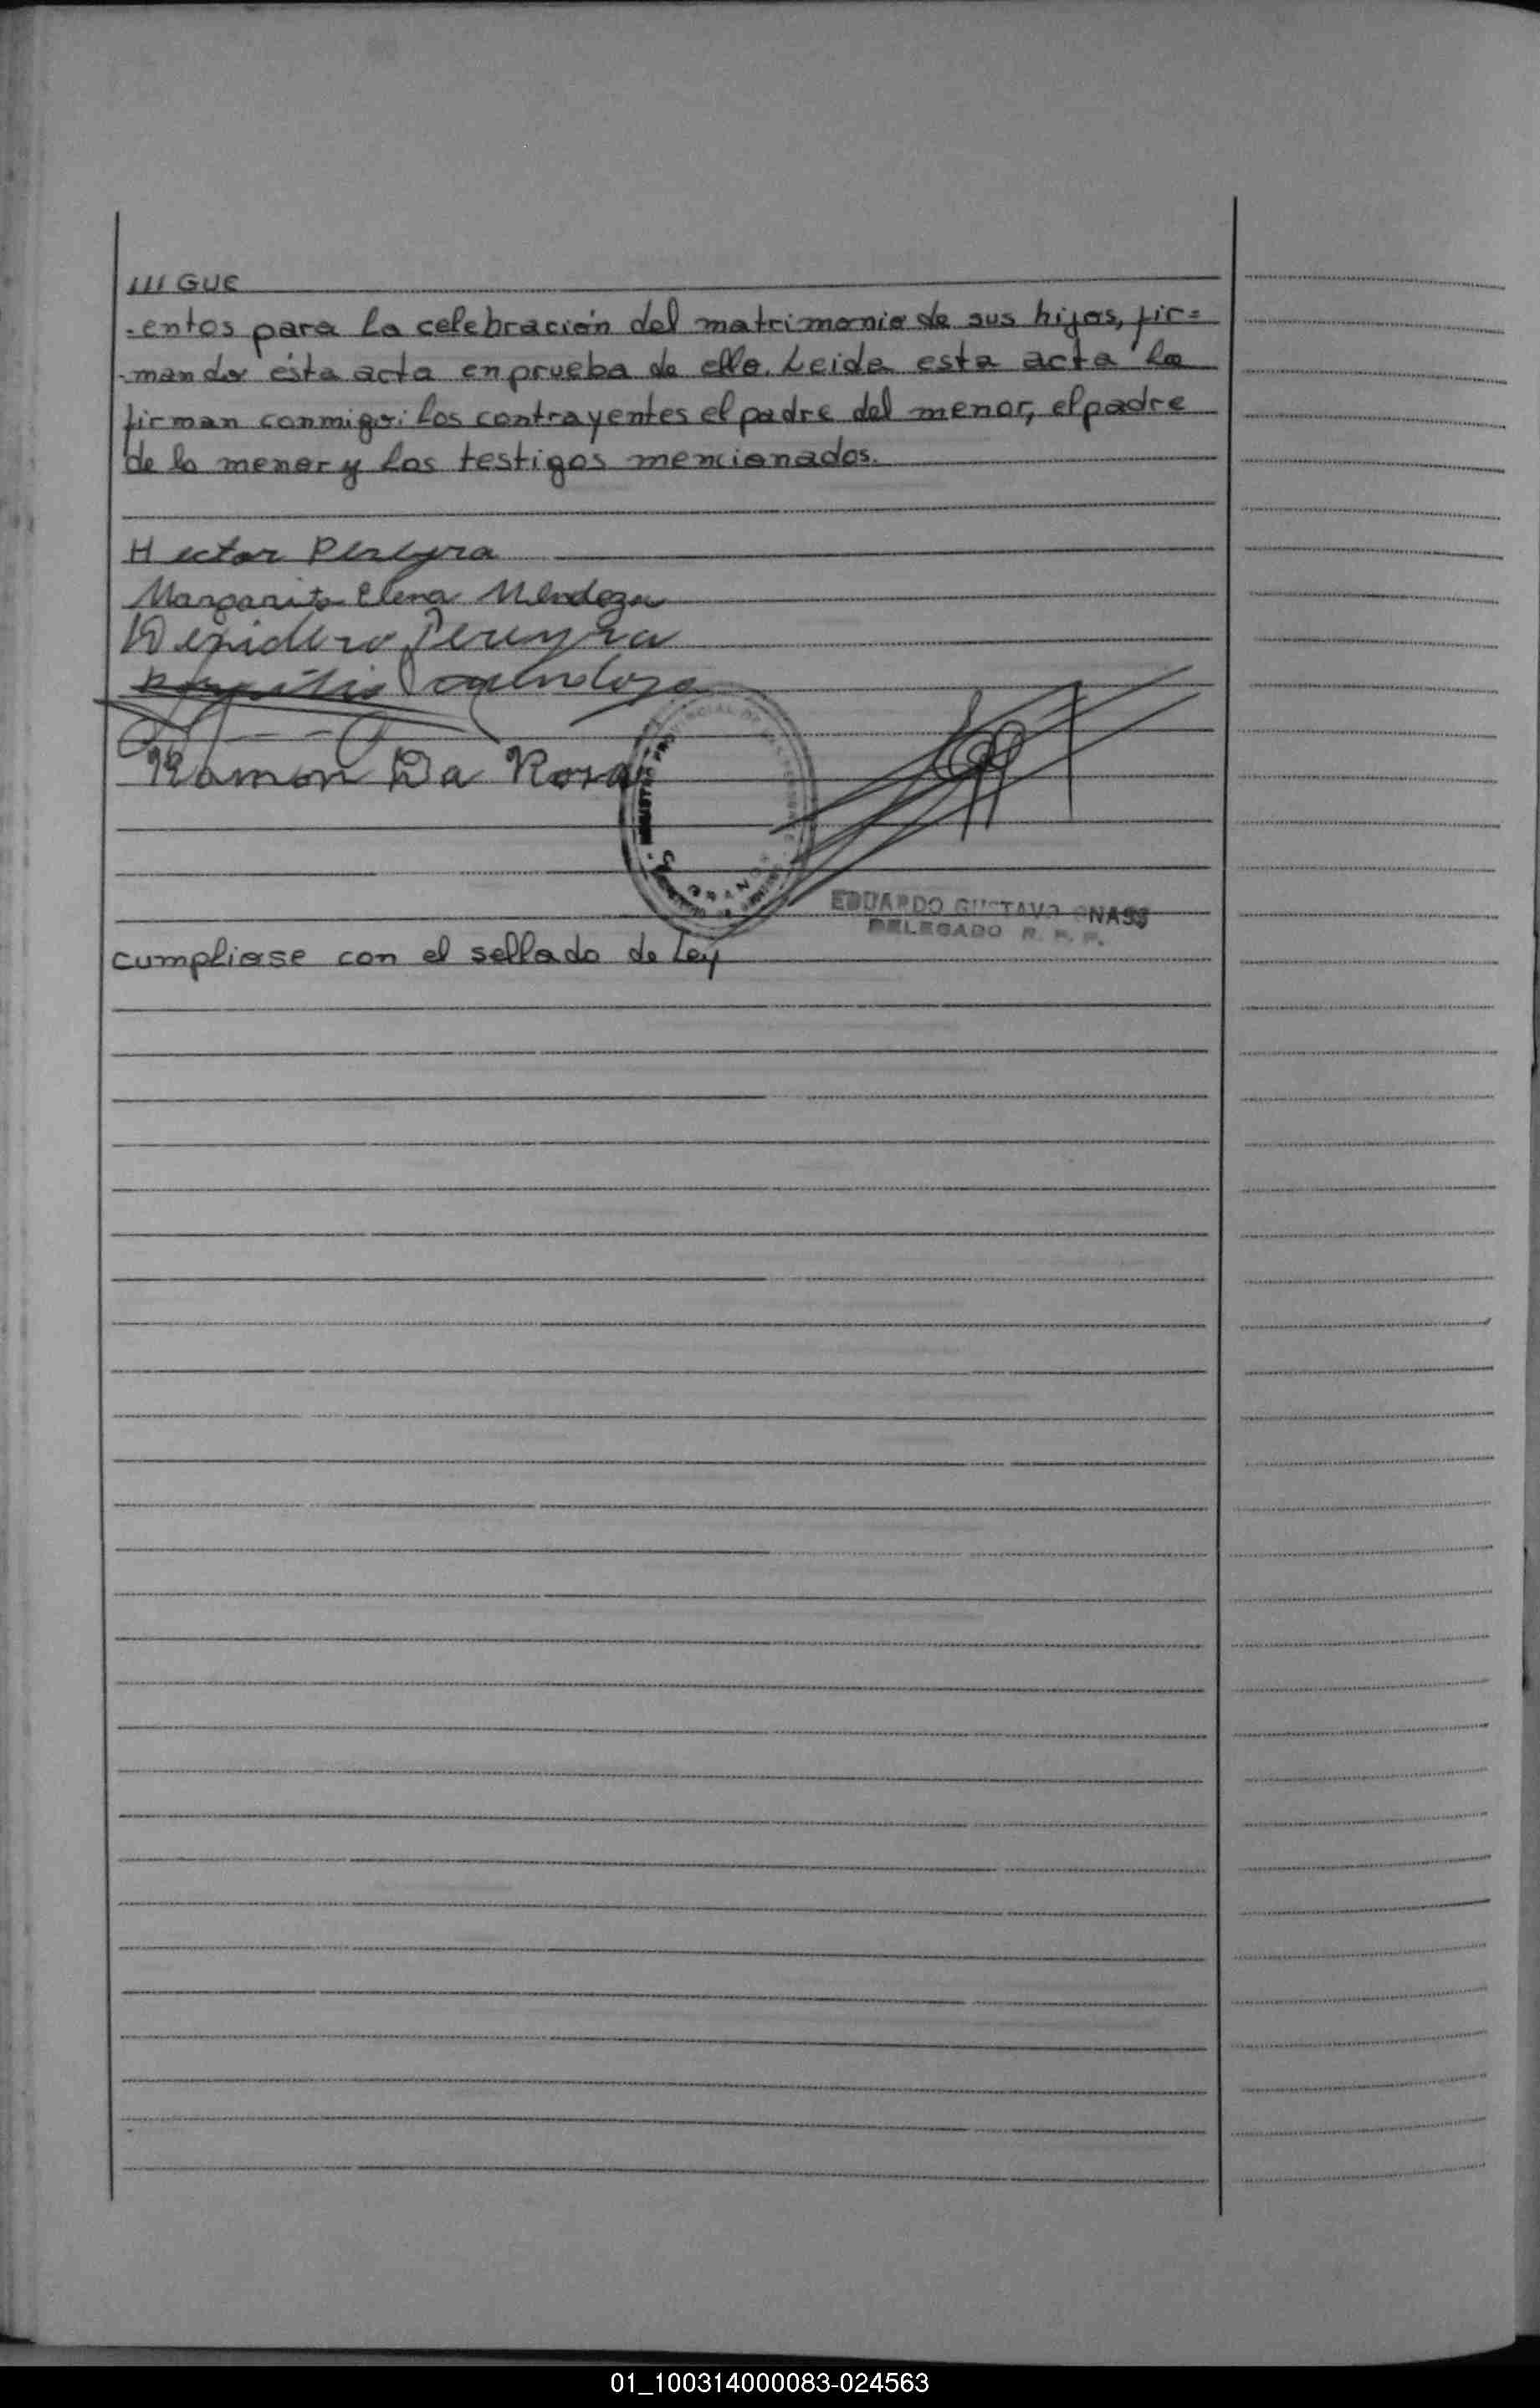 /// GUE
-entos para la celebración del matrimonio de sus hijos, fir=
-mando ésta acta en prueba de ello. Leida esta acta la
firman conmigo: los contrayentes el padre del menor, el padre
de la menor y los testigos mencionados.
Hector Pereyra
Margarita Elena Mendoza
Decidero Pereyra
Mendoza
Ramon Da Rosa
EDUARDO GUSTAVO
DELEGADO R. P. P.
cumpliase con el sellado de Ley
01_100314000083-024563